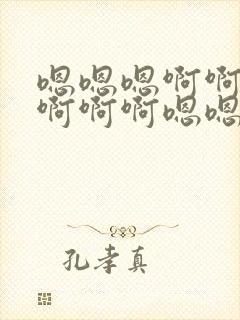 嗯嗯嗯啊啊
啊啊啊嗯嗯
孔孝真